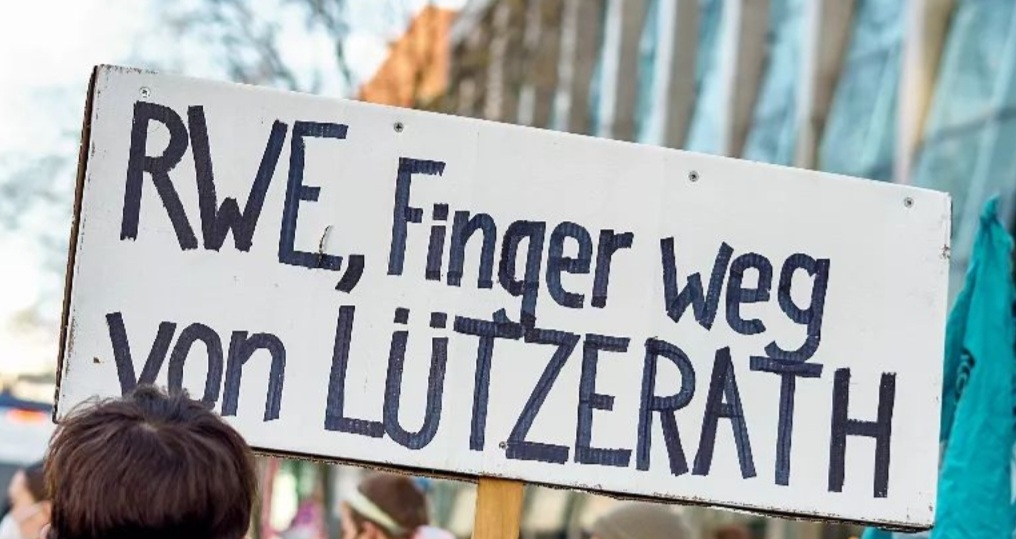 RWE, Finger weg
von LÜTZERATH